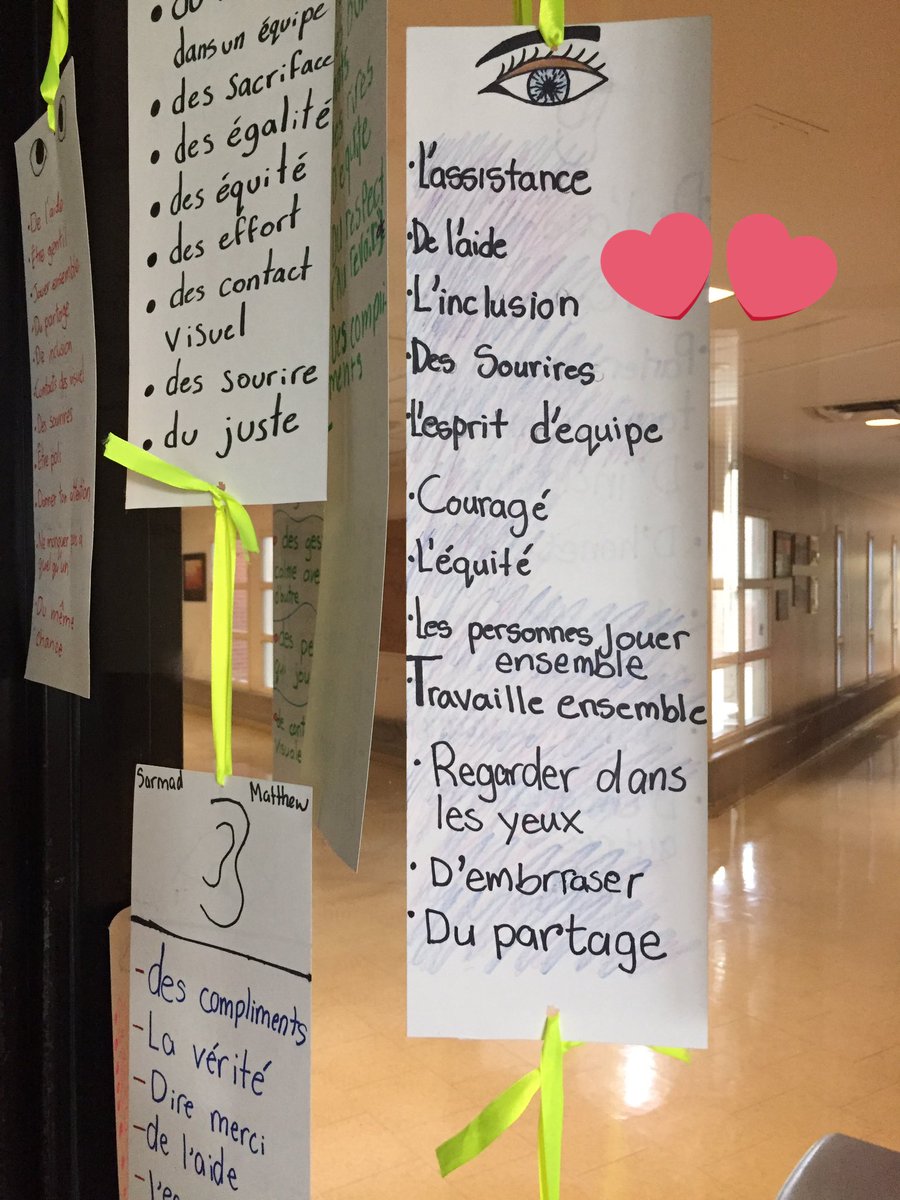 De l'aide
Être gentil
Jouer ensemble
Du partage
De inclusion
Contacts des visuel
Des sourires
Être poli
Donner ton attention
Du même
chance
dans un équipe
des sacriface
des égalité
des équité
des effort
des contact
visuel
des sourire
du juste
des ges
calme ave
d'autre
des pe
Visuale
L'assistance
De l'aide
L'inclusion
Des Sourires
L'esprit d'equipe
Couragé
L'équité
Les personnes Jouer
ensemble
Travaille ensemble
Regarder dans
les yeux
D'embrraser
Du partage
Sarmad
Matthew
- des compliments
- La vérité
- Dire merci
- de l'aide